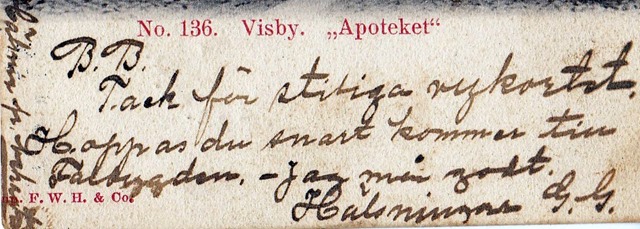 No. 136. Visby. „Apoteket“
B. B.
Tack för stiliga vykortet.
Hoppas du snart kommer till
Falbygden. – Jag mår godt.
Hälsningar G. G.
F. W. H. & Co.